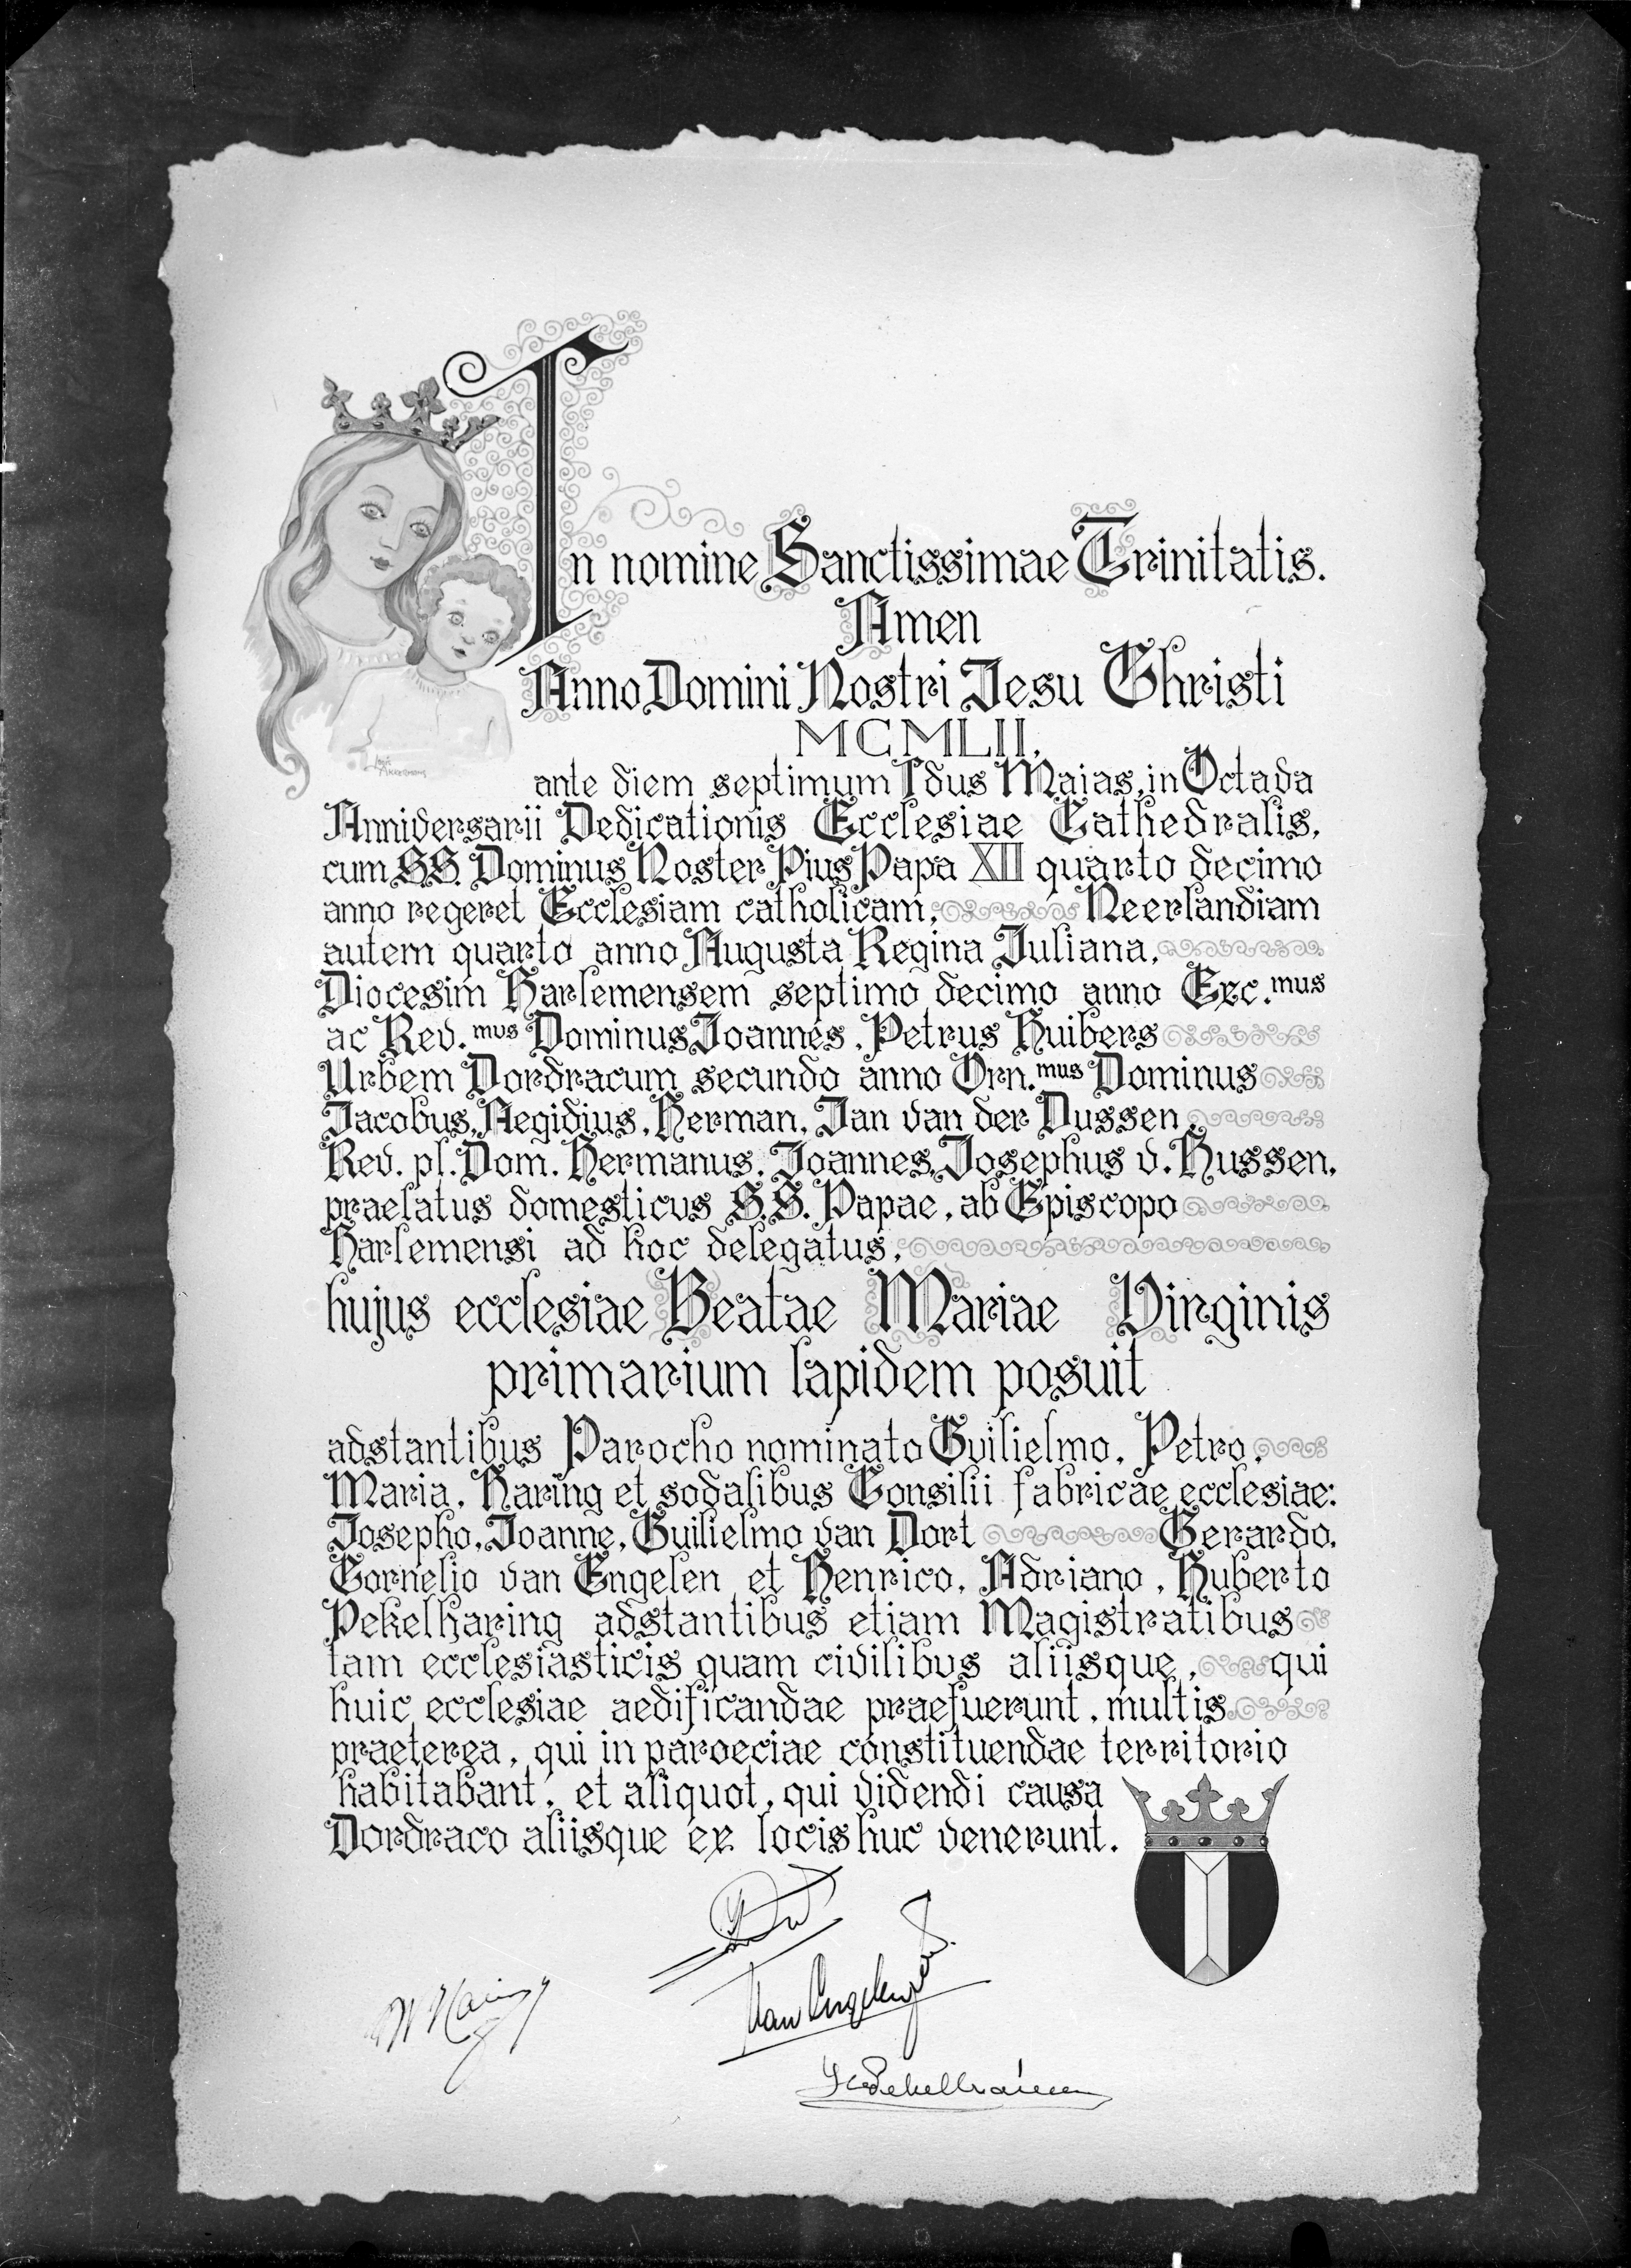 In nomine Sanctissimae Trinitatis.
Amen
Anno Domini Nostri Jesu Christi
MCMLII.
ante diem septimum Idus Maias, in Octava
Anniversarii Dedicationis Ecclesiae Cathedralis,
cum SS. Dominus Noster Pius Papa XII quarto decimo
anno regeret Ecclesiam catholicam, Neerlandiam
autem quarto anno Augusta Regina Juliana,
Diocesim Harlemensem septimo decimo anno Exc.mus
ac Rev.mus Dominus Joannes, Petrus Huibers
Urbem Dordracum secundo anno Orn.mus Dominus
Jacobus, Aegidius, Herman, Jan van der Dussen,
Rev. pl. Dom. Hermanus, Joannes, Josephus v. Hussen,
praelatus domesticus S.S. Papae, ab Episcopo
Harlemensi ad hoc delegatus,
hujus ecclesiae Beatae Mariae Virginis
primarium lapidem posuit
adstantibus Parocho nominato Guilielmo, Petro,
Maria, Haring et sodalibus Consilii fabricae ecclesiae:
Josepho, Joanne, Guilielmo van Dort Gerardo,
Cornelio van Engelen et Henrico, Adriano, Huberto
Pekelharing adstantibus etiam Magistratibus
tam ecclesiasticis quam civilibus aliisque, qui
huic ecclesiae aedificandae praefuerunt, multis
praeterea, qui in paroeciae constituendae territorio
habitabant, et aliquot, qui videndi causa
Dordraco aliisque ex locis huc venerunt.
W Haring
van Engelen
Pekelharing